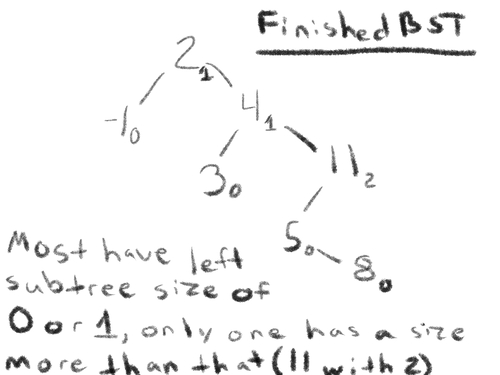 Finished BST
2 1
-1 0
4 1
3 0
11 2
5 0
8 0
Most have left
subtree size of
0 or 1, only one has a size
more than that (11 with 2)